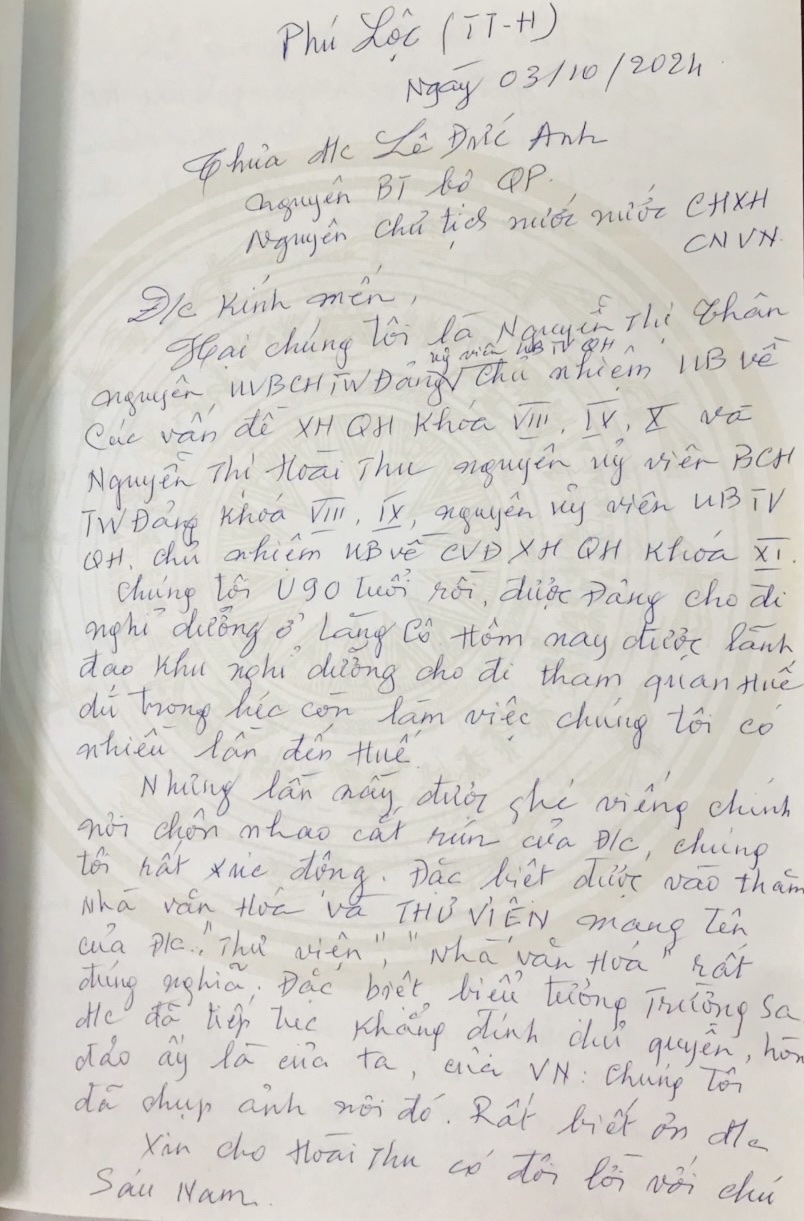 Phú Lộc (TT-H)
Ngày 03/10/2024
Thưa đ/c Lê Đức Anh
nguyên BT bộ QP.
Nguyên Chủ tịch nước nước CHXH
CNVN.
Đ/c Kính mến,
Hai chúng tôi là Nguyễn Thị Thân
uỷ viên UBTVQH
nguyên UVBCHTW Đảng Chủ nhiệm UB về
Các vấn đề XH QH Khóa VIII, IX, X và
Nguyễn Thị Hoài Thu nguyên uỷ viên BCH
TW Đảng Khoá VIII, IX, nguyên uỷ viên UBTV
QH, chủ nhiệm UB về CVĐXH QH Khoá XI.
Chúng tôi U90 tuổi rồi, được Đảng cho đi
nghỉ dưỡng ở Lăng Cô Hôm nay được lãnh
đạo Khu nghỉ dưỡng cho đi tham quan Huế
dù trong lúc còn làm việc chúng tôi có
nhiều lần đến Huế.
Nhưng lần này được ghé viếng chính
nơi chôn nhao cắt rún của Đ/c, chúng
tôi rất xúc động. Đặc biệt được vào thăm
Nhà văn Hoá và THƯ VIỆN mang tên
của Đ/c. "Thư viện", "Nhà văn Hoá" rất
đúng nghĩa. Đặc biệt, biểu tượng Trường Sa
đ/c đã tiếp tục Khẳng định chủ quyền, hòn
đảo ấy là của ta, của VN: Chúng Tôi
đã chụp ảnh nơi đó. Rất biết ơn đ/c
Xin cho Hoài Thu có đôi lời với chú
Sáu Nam.